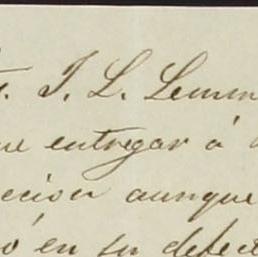 J. L. Lemm
ue entregar á
ecioer aunque
ó en su defect